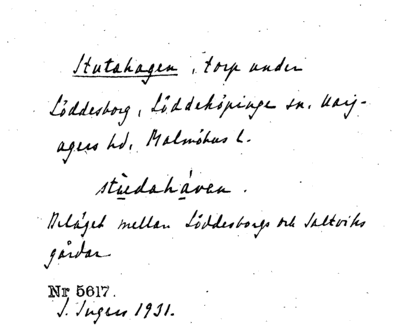 Stutahagen, torp under
Löddesborg, Löddeköpinge sn. Harj-
agers hd, Malmöhus l.
stu̱edahá̱ven.
Beläget mellan Löddesborgs och Saltviks
gårdar
Nr 5617.
S. Ingers 1931.